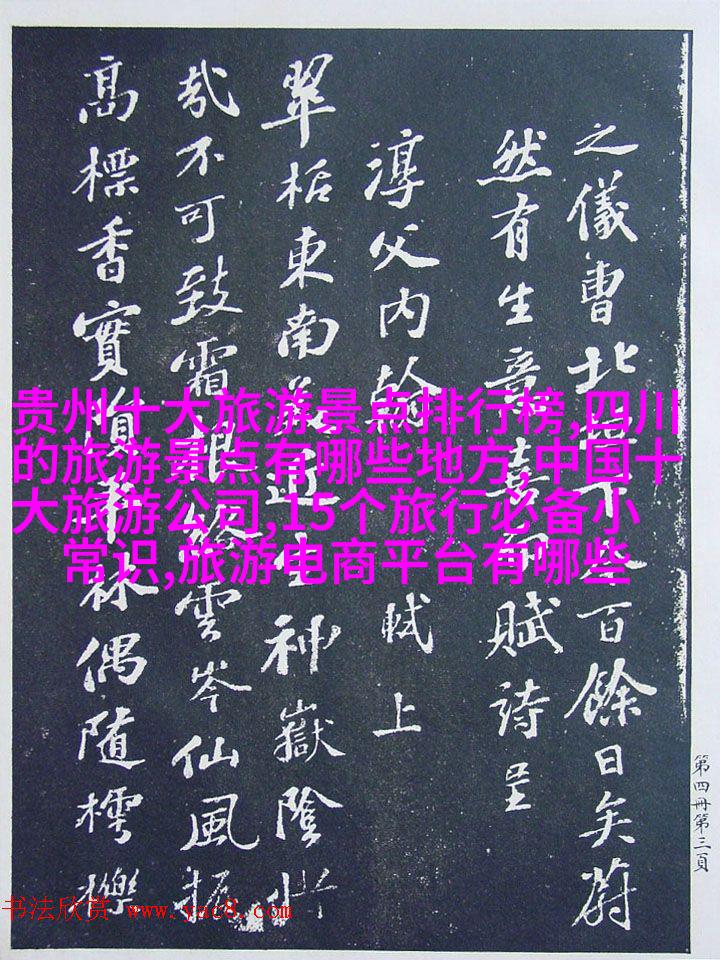 之儀曹北下今百餘日矣蔚
然有生意喜而賦詩呈
淳父内翰 軾上
翠栝東南美近生神嶽陰惜
哉不可致霜根絡雲岑仙風振
高標香實隕平林偶隨樗櫟
贵州十大旅游景点排行榜,四川
的旅游景点有哪些地方,中国十
大旅游公司,15个旅行必备小
常识,旅游电商平台有哪些
第四冊第三頁
书法欣赏 www.yac8.com